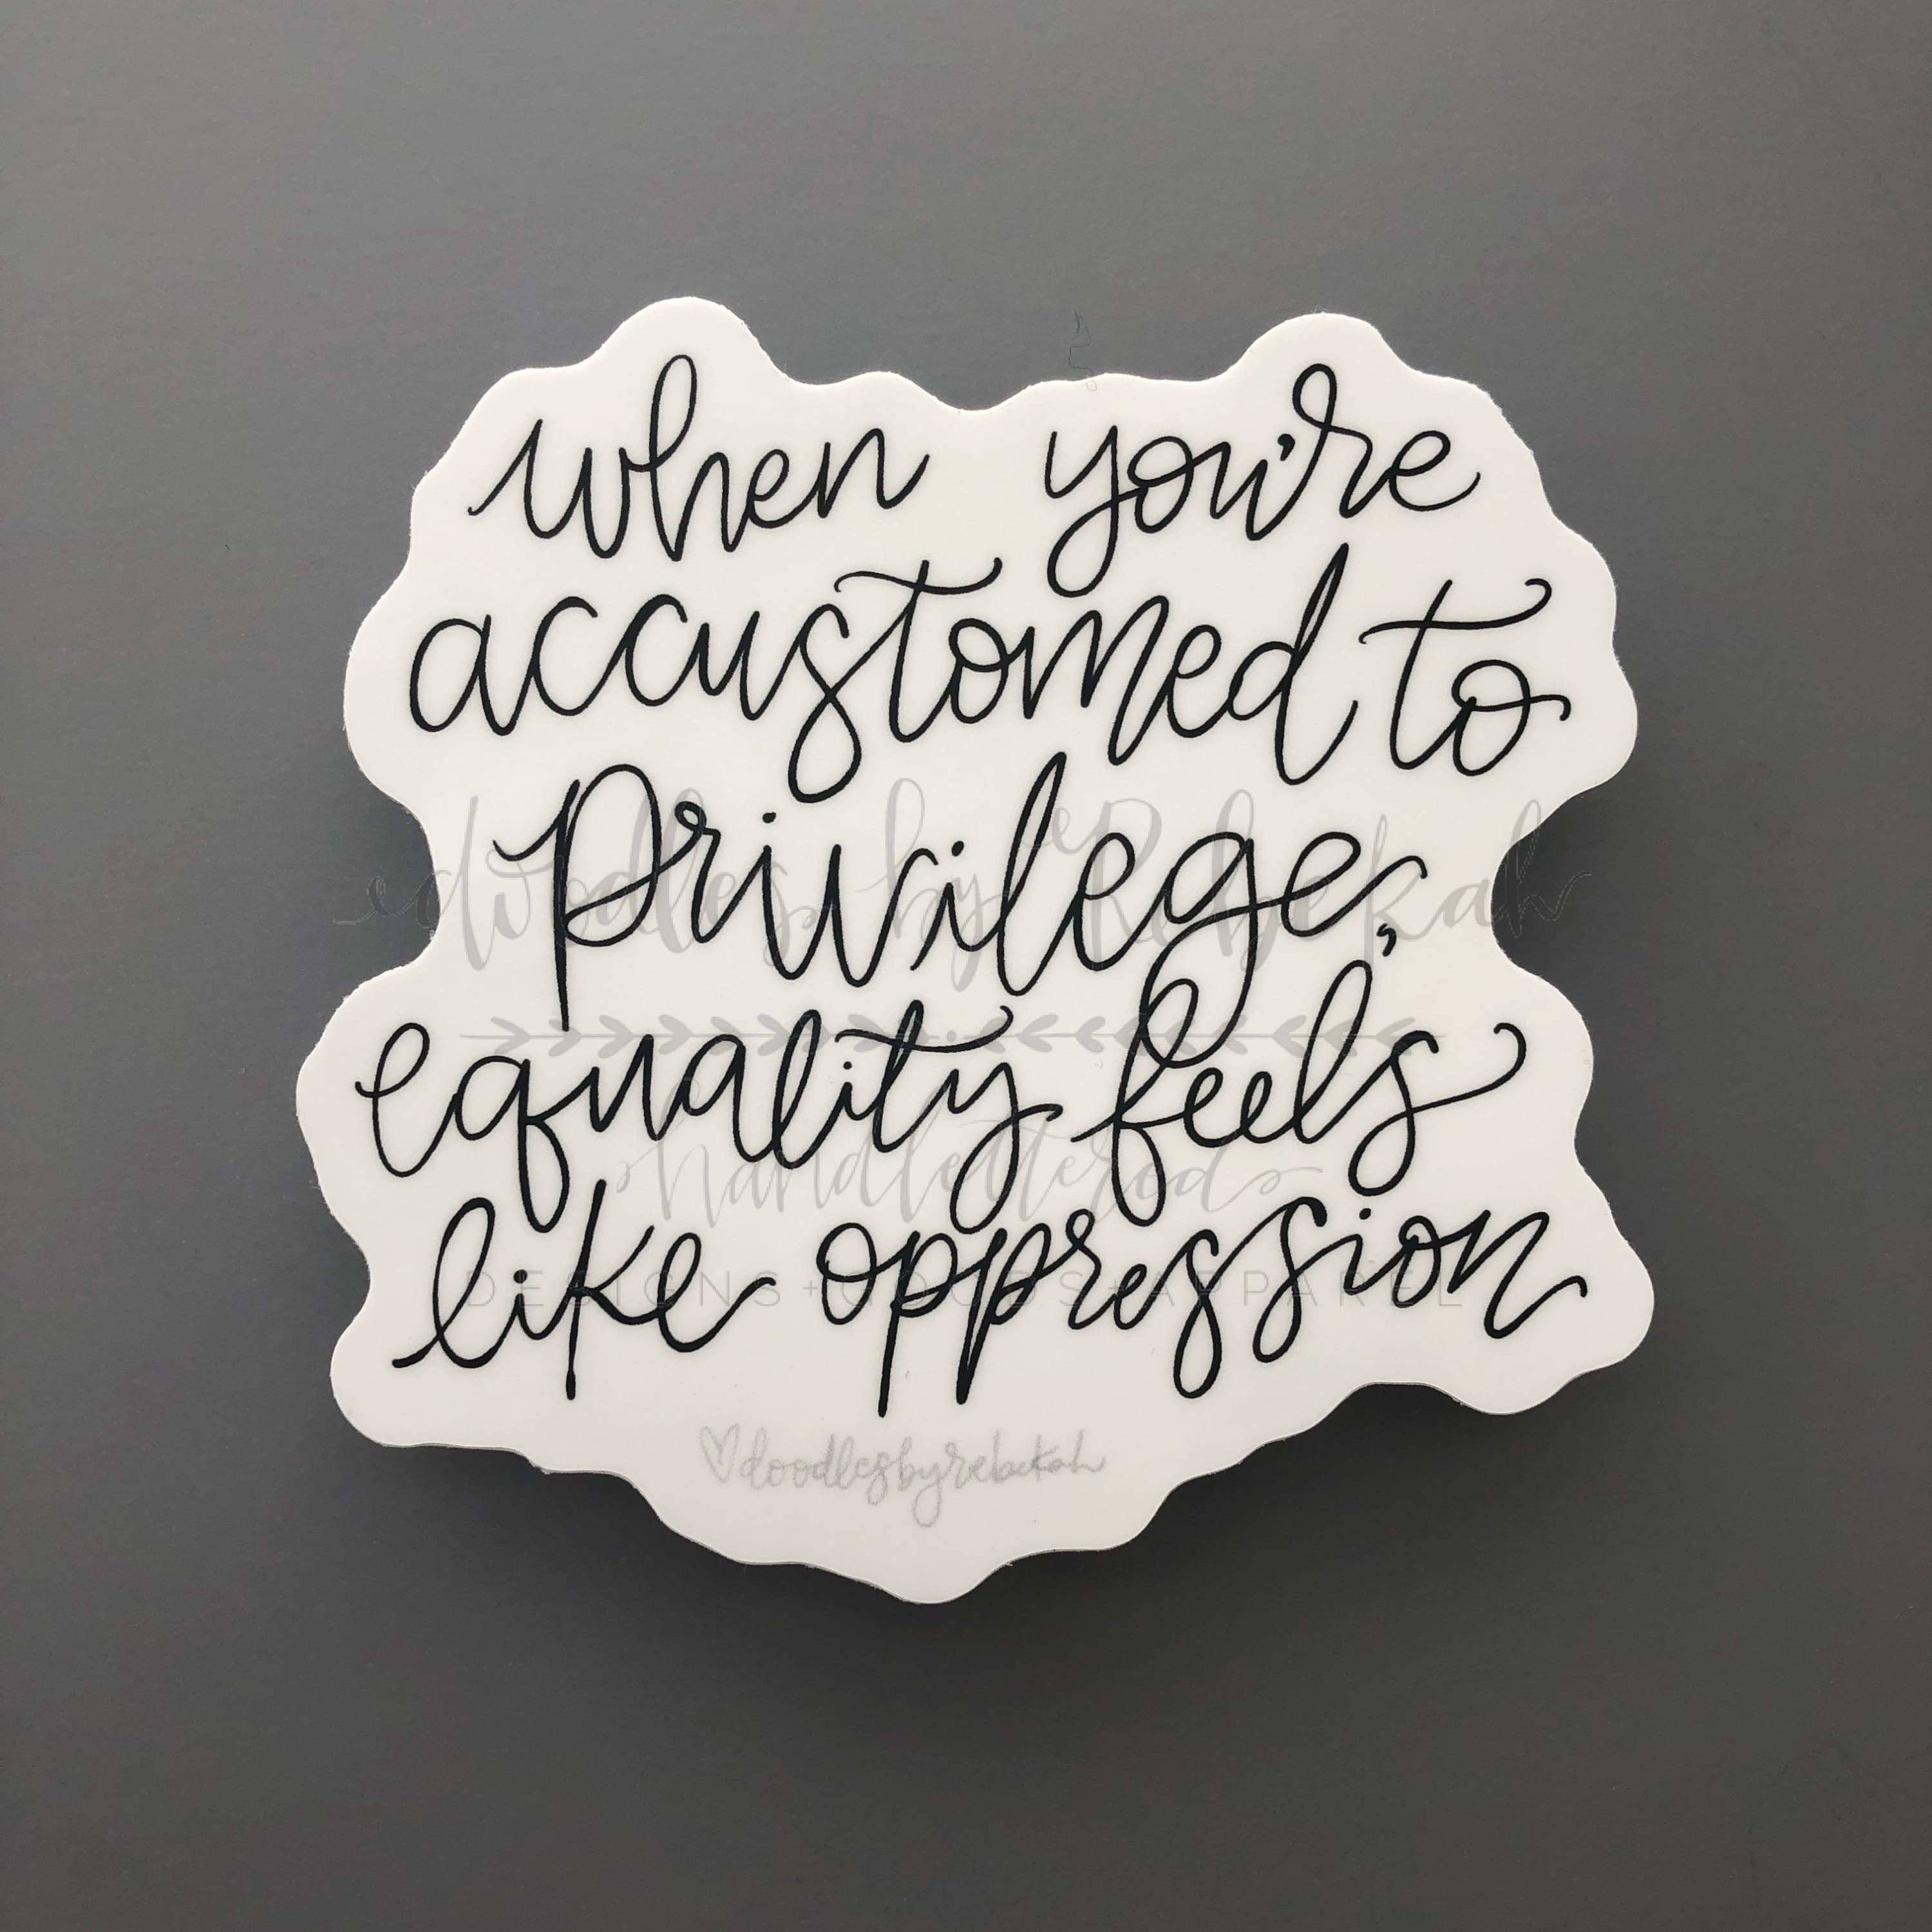 when you're
accustomed to
privilege,
doodles by Rebekah
equality feels
handlettered
like oppression
DESIGNS + GOODS + APPAREL
doodlesbyrebekah